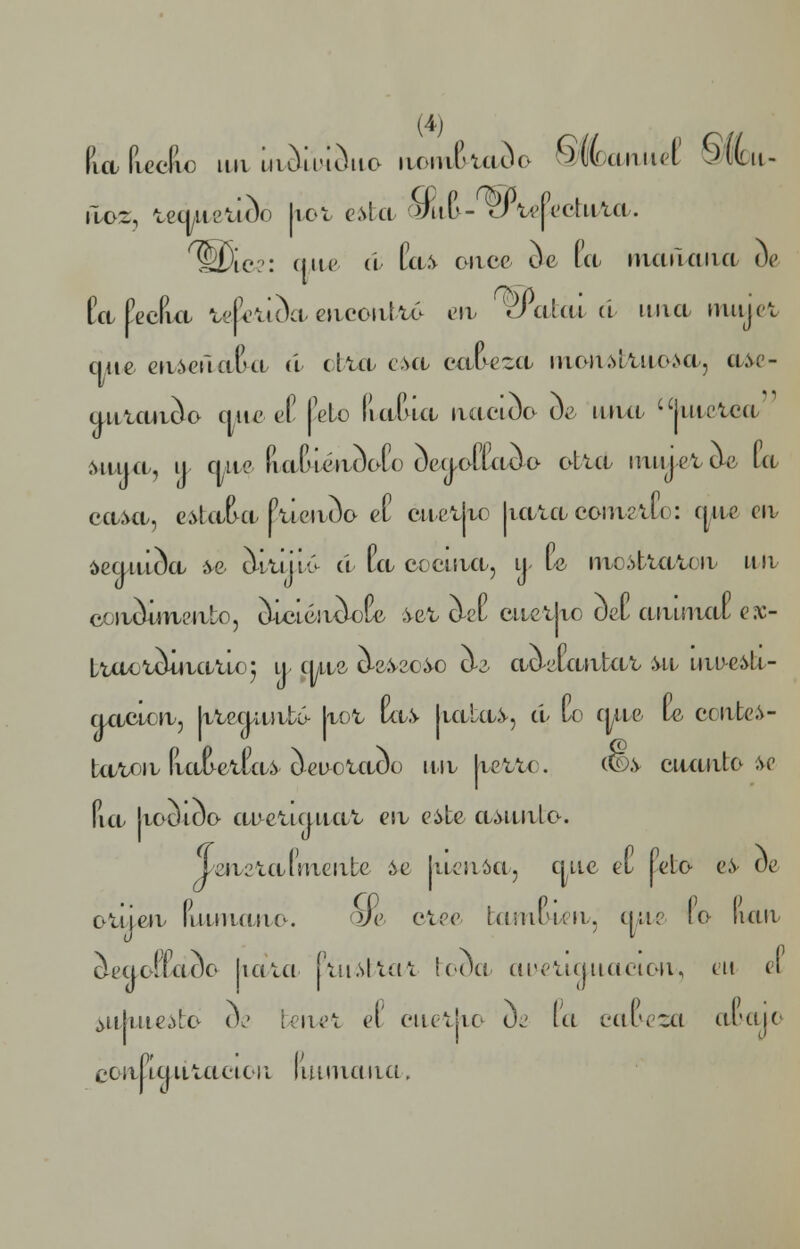 (4)
ha hecho un individuo nombrado Manuel Mu-
ñoz, requerido por esta Sub-Prefectura.
Dice: que á las once de la mañana de
la fecha referida encontró en Palai á una mujer
que enseñaba á otra esa cabeza monstruosa, ase-
gurando que el feto habia nacido de una "puerca"
suya, y que habiéndolo degollado otra mujer de la
casa, estaba friendo el cuerpo para comerlo: que en
seguida se dirijió á la cocina, y le mostraron un
condimento, diciéndole ser del cuerpo del animal ex-
traordinario; y que deseoso de adelantar su investi-
gacion, preguntó por las patas, á lo que le contes-
taron haberlas devorado un perro. Es cuanto se
ha podido averiguar en este asunto.
Jeneralmente se piensa, que el feto es de
orijen humano. Se cree tambien, que lo han
degollado para frustrar toda averiguacion, en el
supuesto de tener el cuerpo de la cabeza abajo
configuracion humana.